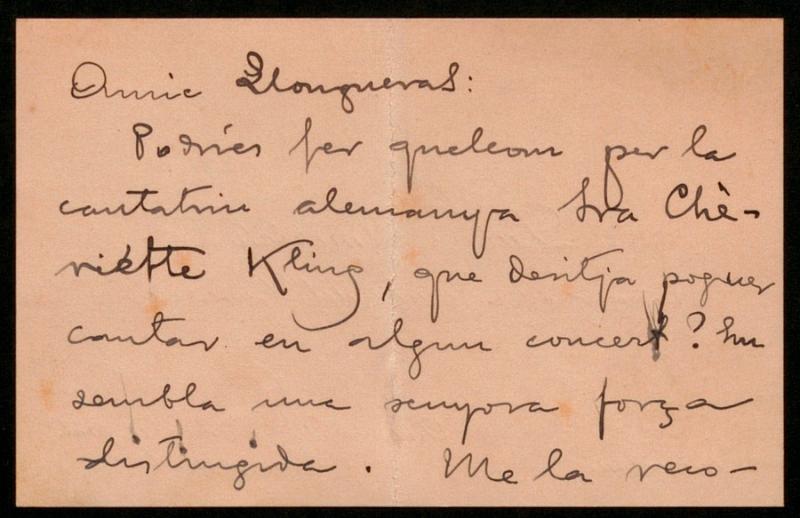 Amic Llongueras:
Podries fer quelcom per la
cantatriu alemanya Sra Chè-
riètte Kling, que desitja poguer
cantar en algun concert? Em
sembla una senyora força
distingida. Me la reco-